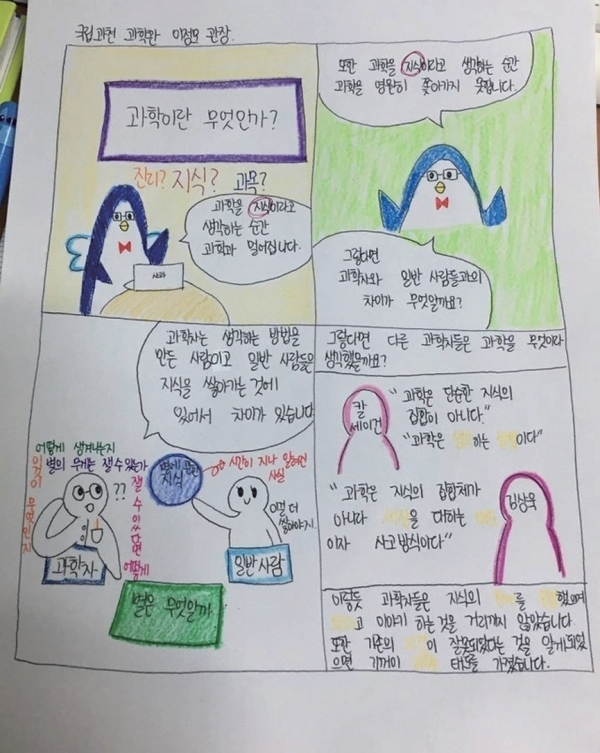 국립과천 과학관 이정모 관장.
과학이란 무엇인가?
진리? 지식? 과목?
과학을 지식이라고
생각하는 순간
과학과 멀어집니다.
사회
또한 과학을 지식이라고 생각하는 순간
과학을 영원히 쫓아가지 못합니다.
그렇다면
과학자와 일반 사람들과의
차이가 무엇일까요?
과학자는 생각하는 방법을
만든 사람이고 일반 사람들은
지식을 쌓아가는 것에
있어서 차이가 있습니다
어떻게 생겨나는지
별의 무게는 잴 수 있는가
잴 수 있다면 어떻게
무엇인지
??
과학자
별에 관한
지식
시간이 지나 잃어버린
사실
어떻게 더
쌓아야지
일반사람
별은 무엇일까
그렇다면 다른 과학자들은 과학을 무엇이라
생각했을까요?
칼
세이건
"과학은 단순한 지식의
집합이 아니다."
"과학은 하는 이다"
"과학은 지식의 집합체가
아니라 을 대하는
이자 사고방식이다"
김상욱
이렇듯 과학자들은 지식의 를 했으며
고 이야기 하는 것을 꺼리지 않았습니다.
또한 기존의 이 잘못되었다는 것을 알게되었
으면 기꺼이 태도를 가졌습니다.